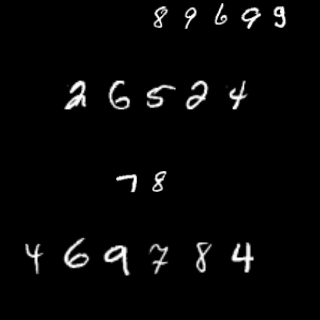 89699
26524
78
469784